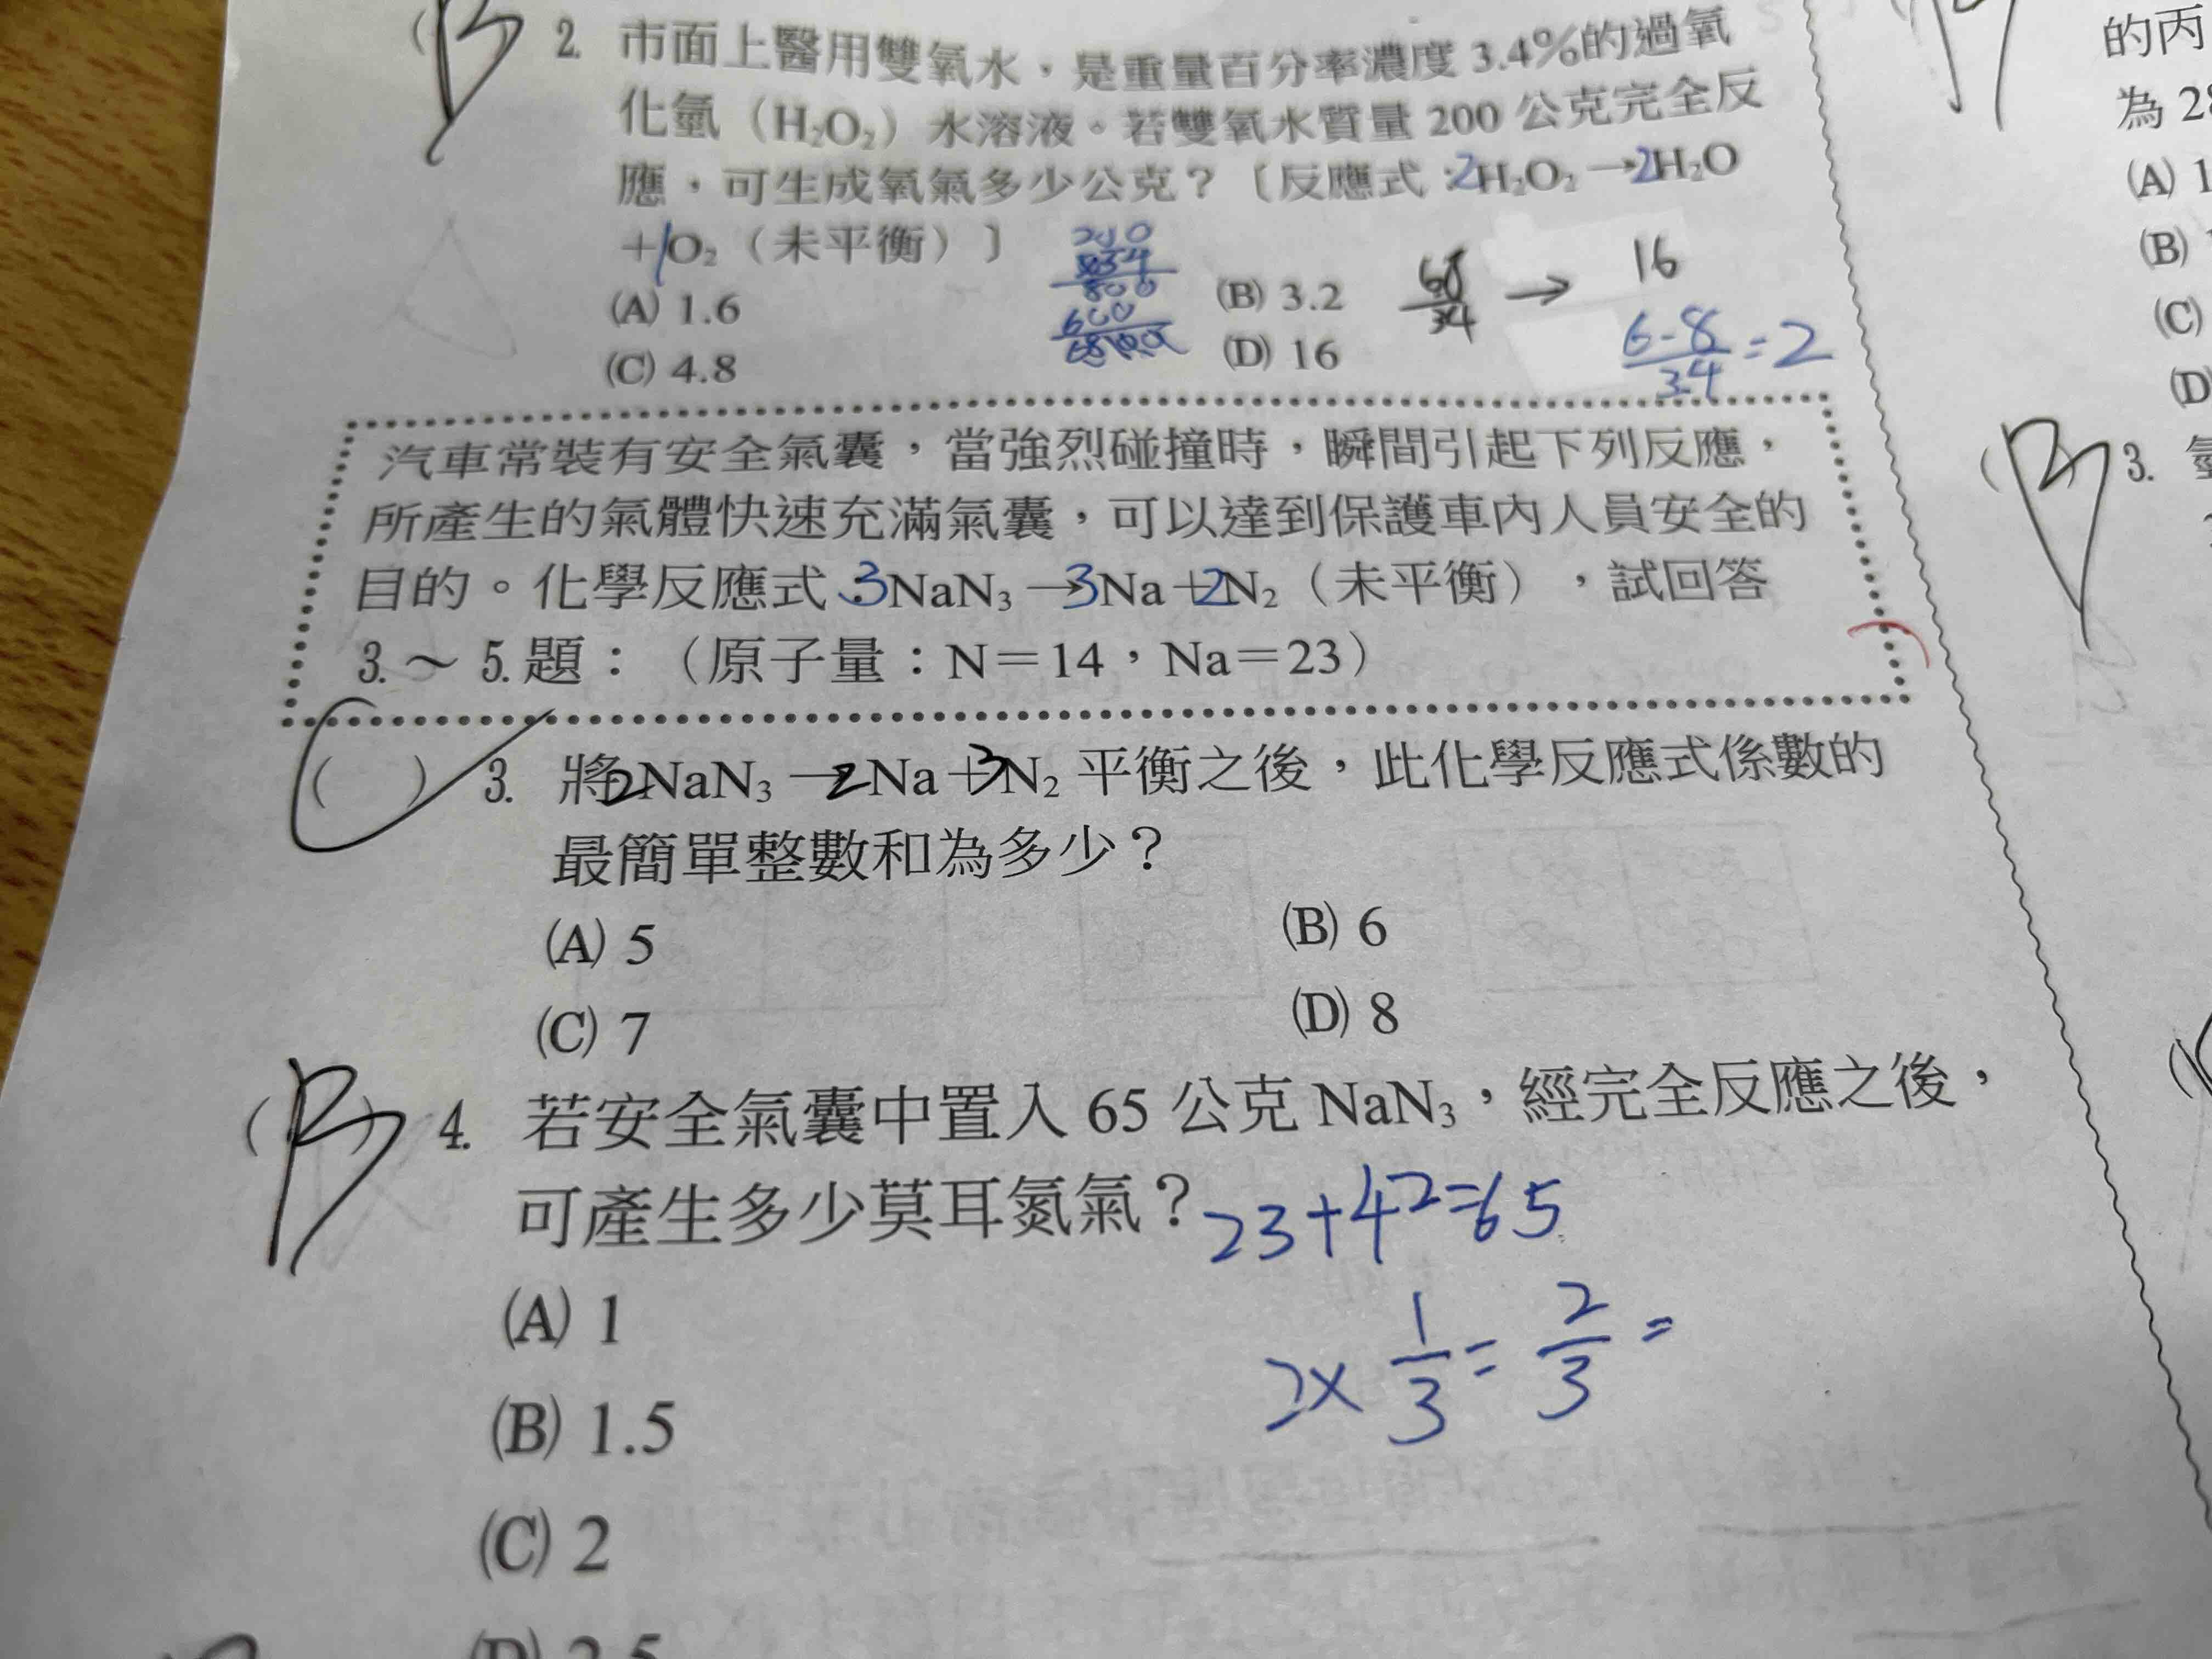 (B) 2. 市面上醫用雙氧水，是重量百分率濃度 3.4%的過氧
化氫（H₂O₂）水溶液。若雙氧水質量 200 公克完全反
應，可生成氧氣多少公克？〔反應式：2H₂O₂→2H₂O
+1O₂（未平衡）〕
(A) 1.6
(B) 3.2
68/34 → 16
(C) 4.8
(D) 16
6.8/3.4=2
汽車常裝有安全氣囊，當強烈碰撞時，瞬間引起下列反應，
所產生的氣體快速充滿氣囊，可以達到保護車內人員安全的
目的。化學反應式：3NaN₃→3Na+2N₂（未平衡），試回答
3.～5.題：（原子量：N＝14，Na＝23）
( ) 3. 將2NaN₃→2Na+3N₂ 平衡之後，此化學反應式係數的
最簡單整數和為多少？
(A) 5
(B) 6
(C) 7
(D) 8
(B) 4. 若安全氣囊中置入 65 公克 NaN₃，經完全反應之後，
可產生多少莫耳氮氣？ 23+42=65
(A) 1
2×1/3=2/3=
(B) 1.5
(C) 2
(D) 2.5
的丙
為 28
(A) 1
(B)
(C)
(D)
(B) 3.